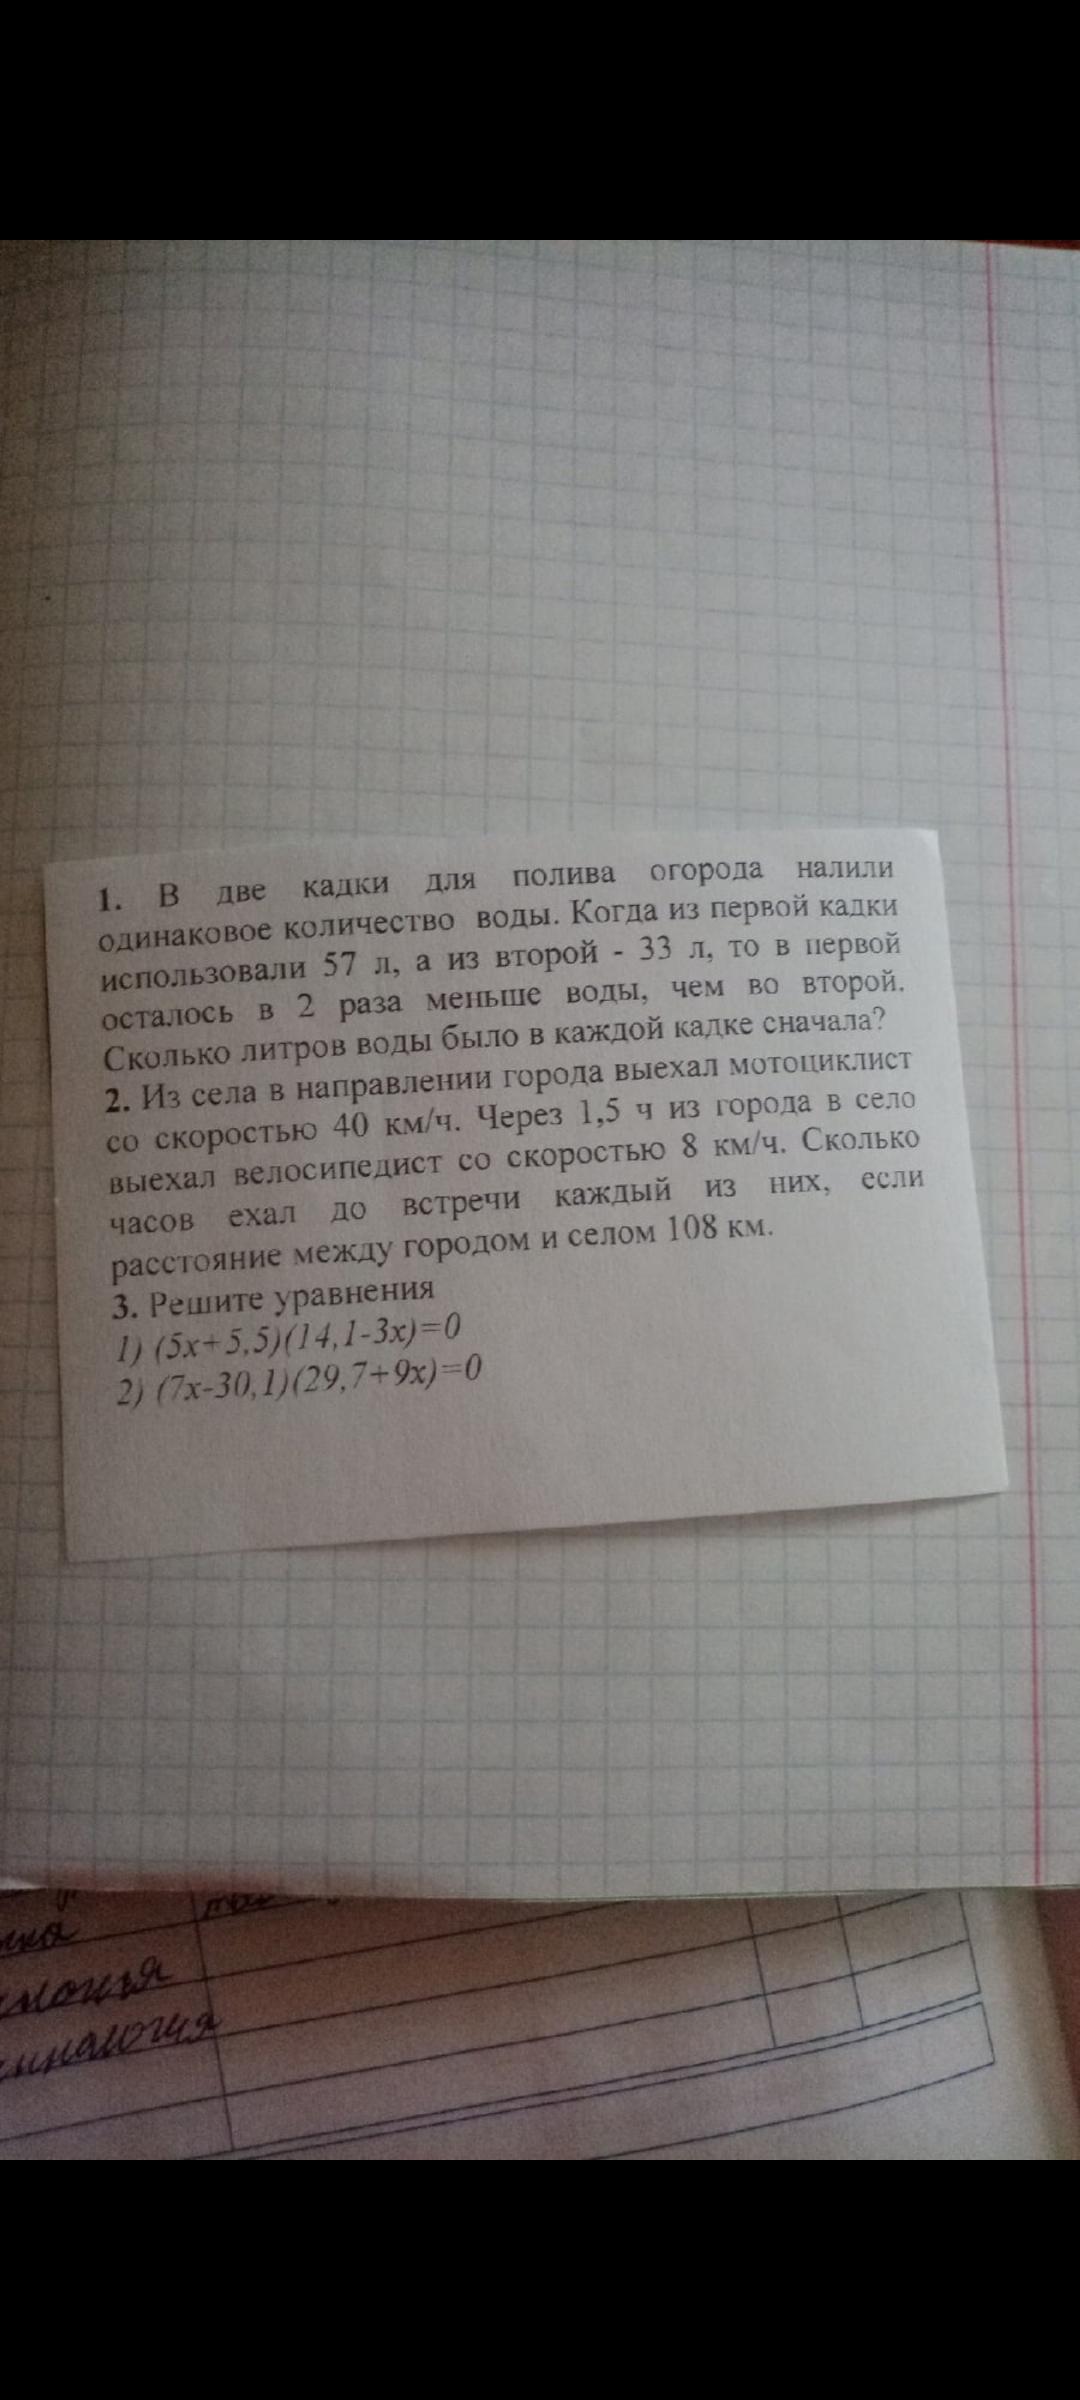 1. В две кадки для полива огорода налили
одинаковое количество воды. Когда из первой кадки
использовали 57 л, а из второй - 33 л, то в первой
осталось в 2 раза меньше воды, чем во второй.
Сколько литров воды было в каждой кадке сначала?
2. Из села в направлении города выехал мотоциклист
со скоростью 40 км/ч. Через 1,5 ч из города в село
выехал велосипедист со скоростью 8 км/ч. Сколько
часов ехал до встречи каждый из них, если
расстояние между городом и селом 108 км.
3. Решите уравнения
1) (5х+5,5)(14,1-3х)=0
2) (7х-30,1)(29,7+9х)=0